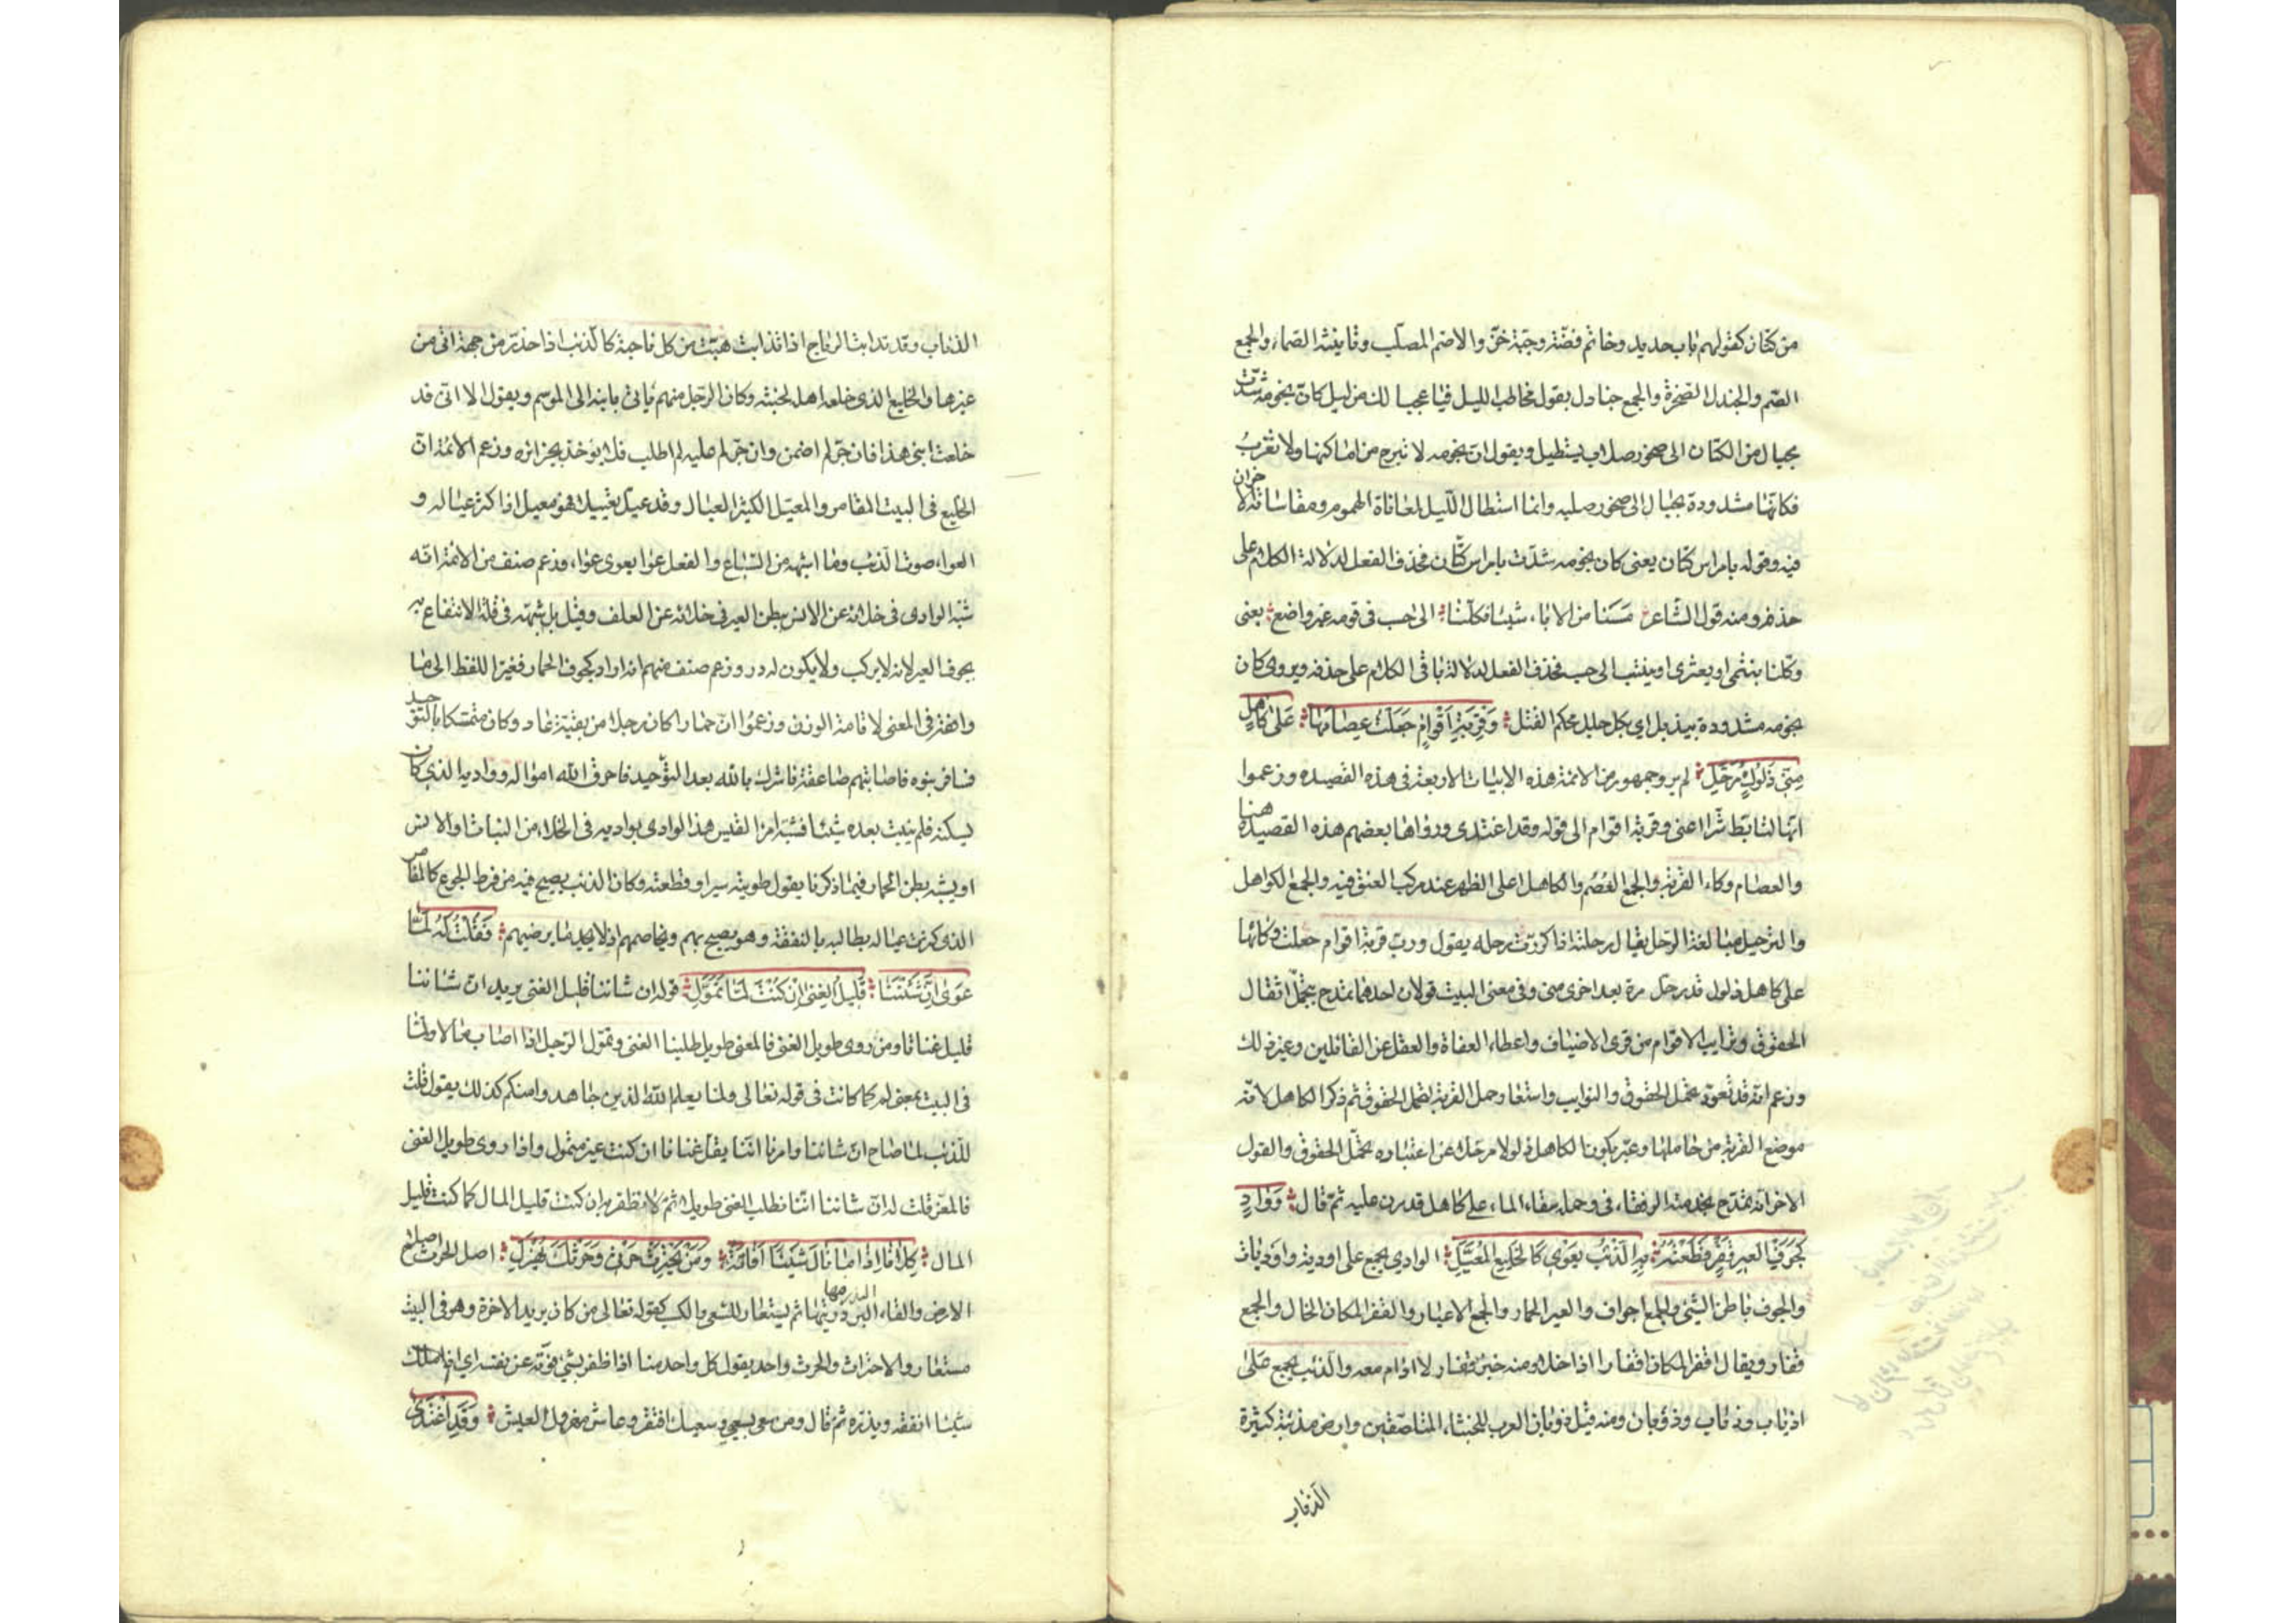 من كتان كقولهم باب حديد وخاتم فضة وجبة خز والاصم الصلب وتانيثه الصماء والجمع
الصم والجندل الصخرة والجمع جنادل يقول مخاطب الليل فيا عجبا لك من ليل كان نجومه شدت
بحبال من الكتان الى صخور صلاب يستطيل ويقول ان نجومه لا تبرح من اماكنها ولا تغرب
فكانها مشدودة بحبال الى صخور صلبه وانما استطال الليل لمعاناة الهموم ومقاساته الاحزان
فيه وقوله بامراس كتان يعنى كان نجومه شدت بامراس كتان فحذف الفعل لدلالة الكلام على
حذفه ومنه قول الشاعر مسسنا من الاباء شيئا فكلنا الى حسب فى قومه غير واضع يعنى
وكلنا ينتمى او يعتزى او ينتسب الى حسب فحذف الفعل لدلالة باقى الكلام على حذفه ويروى كان
نجومه مشدودة بيذبل اي بكل حبل محكم الفتل وَقِرْبَةِ اَقْوامٍ جَعَلْتُ عِصامَها عَلى كاهِلٍ
مِنّى ذَلُولٍ مُرَحَّلِ لم يرو جمهور من الائمة هذه الابيات الاربعة فى هذه القصيده وزعموا
انها لتابط شرا اعنى وقربة اقوام الى قوله وقد اغتدى ورواها بعضهم هذه القصيده هنا
والعصام وكاء القربة والجمع العُصُم والكاهل اعلى الظهر عند مركب العنق فيه والجمع الكواهل
والترحيل مبالغة الرحل يقال رحلته اذا كررت رحله يقول ورب قربة اقوام جعلت وكائها
على كاهل ذلول قد رحل مرة بعد اخرى منى وفى معنى البيت قولان احدهما تمدح بتحمل اثقال
الحقوق ونوايب الاقوام من قرى الاضياف واعطاء العفاة والعقل عن القاتلين وغير ذلك
وزعم انه قد تعود تحمل الحقوق والنوايب واستعار حمل القربة لتحمل الحقوق ثم ذكر الكاهل لانه
موضع القربة من حاملها وعبر بكون الكاهل ذلولا مرحلا عن اعتياده تحمل الحقوق والقول
الاخر انه تمدح بخدمته الرفقاء فى وحمله سقاء الماء على كاهل قد مرن عليه ثم قال وَوادٍ
كَجَوْفِ العيرِ قَفْرٍ قَطَعْتُهُ بِهِ الذِّئْبُ يَعْوى كَالخَليعِ المُعَيَّلِ الوادى يجمع على اودية واوديات
والجوف باطن الشئ والجمع اجواف والعير الحمار والجمع الاعيار والقفر المكان الخال والجمع
وقفار ويقال اقفر المكان اقفارا اذا خلا ومنه خبز قفار لا ادام معه والذئب يجمع على
اذياب وذئاب وذؤبان ومنه قيل ذوبان العرب للخبثاء المتلصصين وارض مذئبة كثيرة
الذئاب
الذئاب وقد تذابت الرياح اذا تذابت هبت من كل ناحية كالذئب اذا حذر من جهة اتى من
غيرها والخليع الذى خلعه اهله لخبثه وكان الرجل منهم ياتى بابنه الى الموسم ويقول الا انى قد
خلعت ابنى هذا فان جر لم اضمن وان جر عليه لم اطلب فلا يؤخذ بجرائره وزعم الائمة ان
الخليع فى البيت المقامر والمعيل الكثير العيال وقد عيل تعييلا فهو معيل اذا كثر عياله و
العواء صوت الذئب وما اشبهه من السباع والفعل عوا يعوى عواء وزعم صنف من الائمة انه
شبه الوادى فى خلائه عن الانس ببطن العير فى خلائه عن العلف وقيل بل شبهه فى قلة الانتفاع به
بجوف العير لانه لا يركب ولا يكون له در وزعم صنف منهم انه اراد كجوف الحمار فغير اللفظ الى ما
وافقه فى المعنى لاقامة الوزن وزعموا ان حمارا كان رجلا من بقية عاد وكان متمسكا بالتوحيد
فسافر بنوه فاصابتهم صاعقة فاشرك بالله بعد التوحيد فاحرق الله امواله وواديه الذى كان
يسكنه فلم ينبت بعده شيئا فشبه امرؤ القيس هذا الوادى بواديه فى الخلاء من النبات والانس
او يشبه بطن الحمار فيما ذكرنا يقول طويته سيرا وقطعته وكان الذئب يصيح فيه من فرط الجوع كالمقامر
الذى كثرت عياله يطالبه بالنفقة وهو يصيح بهم ويخاصمهم اذ لا يجد ما يرضيهم فَقُلْتُ لَهُ لَمّا
عَوى اِنَّ شَأنَنا قَليلُ الغِنى اِنْ كُنْتَ لَمّا تَمَوَّلِ قوله ان شاننا قليل الغنى يريد ان شاننا
قليل غنانا ومن روى طويل الغنى فالمعنى طويل طلبنا الغنى وتمول الرجل اذا اصاب مالا ولما
فى البيت بمعنى لم كما كانت فى قوله تعالى ولما يعلم الله الذين جاهدوا منكم كذلك يقول قلت
للذئب لما صاح ان شاننا وامرنا اننا يقل غنانا ان كنت غير متمول واذا روى طويل الغنى
فالمعنى قلت له ان شاننا اننا نطلب الغنى طويلا ثم لا نظفر به ان كنت قليل المال كما كنت قليل
المال كِلانا اِذا ما نالَ شَيْئًا اَفاتَهُ وَمَنْ يَحْتَرِثْ حَرْثى وَحَرْثَكَ يُهْزَلِ اصل الحرث اصلاح
الارض والقاء البذر فيها ثم يستعار للسعى والكسب كقوله تعالى من كان يريد الاخرة وهو فى البيت
مستعار والاحتراث والحرث واحد يقول كل واحد منا اذا ظفر بشئ فوته عن نفسه اي اذا ملك
شيئا انفقه وبذره ثم قال ومن سعى سعيى وسعيك افتقر وعاش مهزول العيش وَقَدْ اَغْتَدى